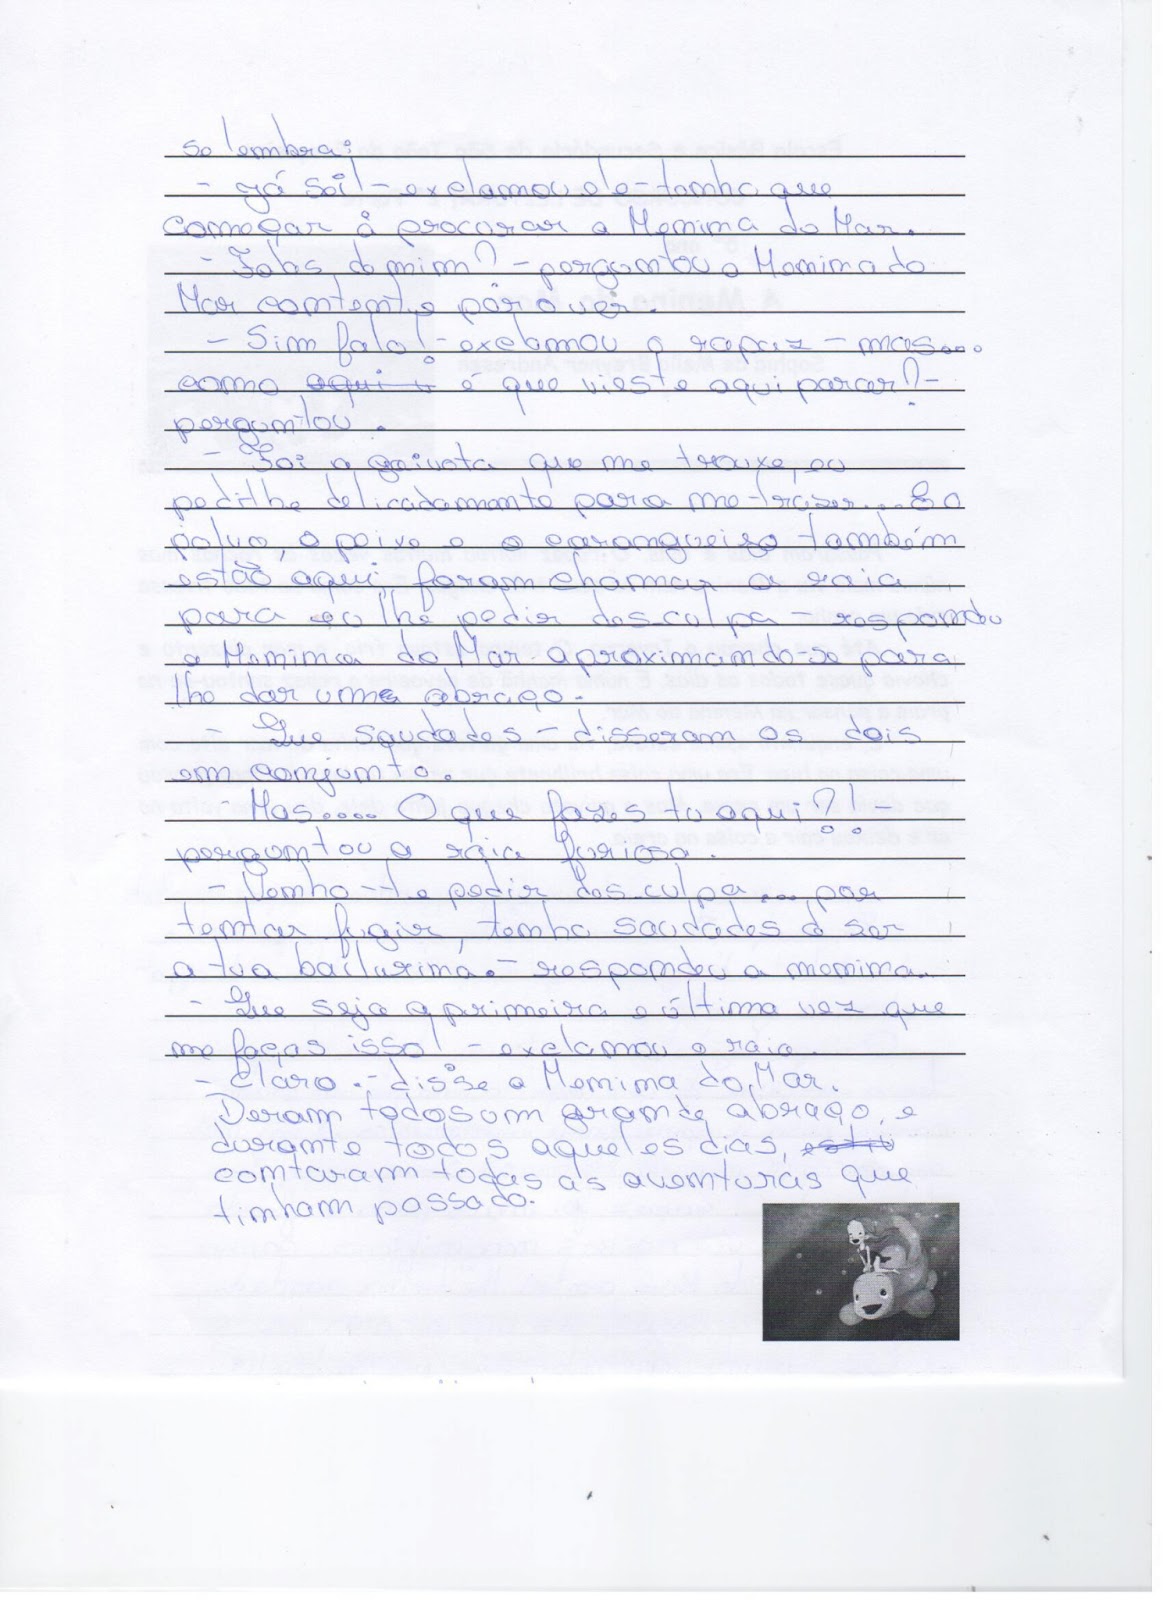 se lembra:
- Já sei! - exclamou ele - tenho que
começar à procurar a Menina do Mar.
- Falas de mim? - perguntou a Menina do
Mar contente por o ver.
- Sim falo! - exclamou o rapaz - mas...
como aqui é que vieste aqui parar? -
perguntou.
- Foi a gaivota que me trouxe, eu
pedi-lhe delicadamente para me trazer... E o
polvo o peixe e o carangueijo também
estão aqui, foram chamar a raia
para eu lhe pedir desculpa - respondeu
a Menina do Mar aproximando-se para
lhe dar uma abraço.
- Que saudades - disseram os dois
em conjunto.
- Mas.... O que fazes tu aqui?! -
perguntou a raia furiosa.
- Venho-te pedir desculpa... por
tentar fugir, tenho saudades de ser
a tua bailarina. - respondeu a menina.
- Que seja a primeira e última vez que
me faças isso! - exclamou a raia.
- Claro. - disse a Menina do Mar.
Deram todos um grande abraço, e
durante todos aqueles dias,
contaram todas as aventuras que
tinham passado.